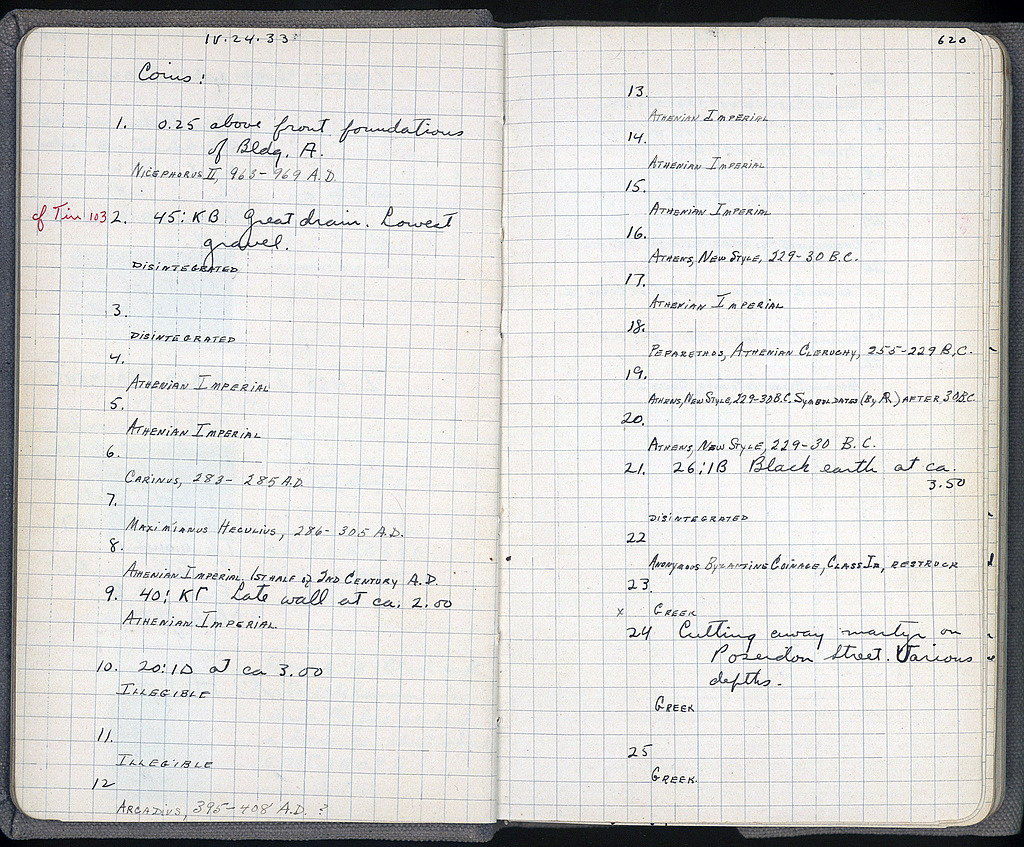 IV.24.33
Coins:
1. 0.25 above front foundations
of Bldg. A.
Nicephorus II, 963-969 A.D.
cf Tin 103 2. 45:KB Great drain. Lowest
gravel.
Disintegrated
3.
Disintegrated
4.
Athenian Imperial
5.
Athenian Imperial
6.
Carinus, 283-285 A.D.
7.
Maximianus Heculius, 286-305 A.D.
8.
Athenian Imperial, 1st half of 2nd Century A.D.
9. 40:ΚΓ Late wall at ca. 2.00
Athenian Imperial
10. 20:ΙΔ at ca 3.00
Illegible
11.
Illegible
12
Arcadius, 395-408 A.D. ?
620
13.
Athenian Imperial
14.
Athenian Imperial
15.
Athenian Imperial
16.
Athens, New Style, 229-30 B.C.
17.
Athenian Imperial
18.
Peparethos, Athenian Cleruchy, 255-229 B.C.
19.
Athens, New Style, 229-30 B.C. Symbol dates (by AR) after 30 B.C.
20.
Athens, New Style, 229-30 B.C.
21. 26:ΙΒ Black earth at ca.
3.50
Disintegrated
22
Anonymous Byzantine Coinage, Class I, restruck
23.
x Greek
24 Cutting away martyr on
Poseidon Street. Various
depths.
Greek
25
Greek